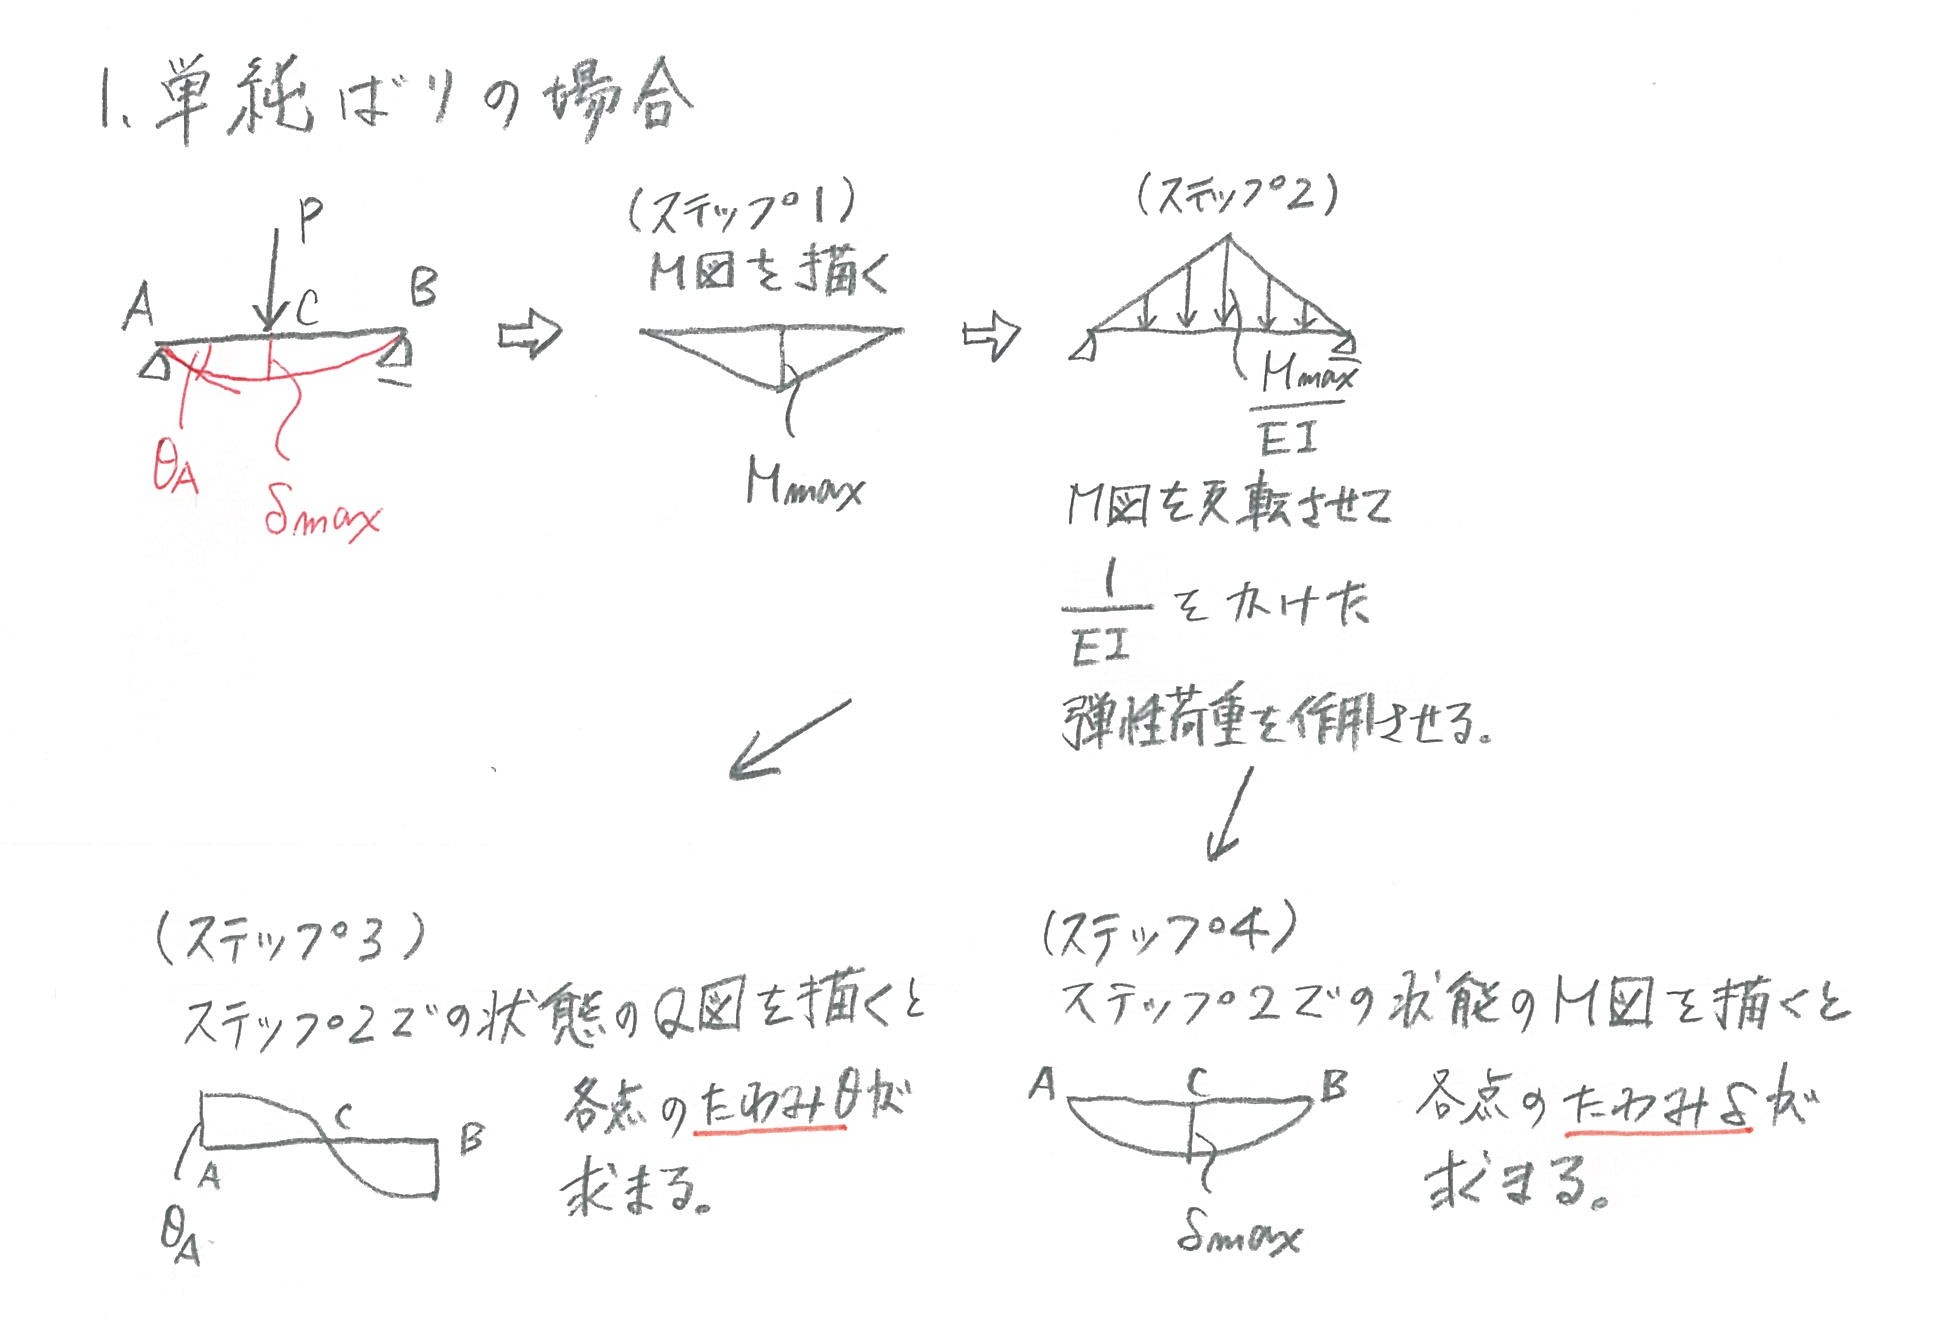 1. 単純ばりの場合
P
A
C
B
θA
δmax
(ステップ1)
M図を描く
Mmax
(ステップ2)
Mmax
EI
M図を反転させて
1
EI
をかけた
弾性荷重を作用させる。
(ステップ3)
ステップ2での状態のQ図を描くと
各点のたわみθが
求まる。
C
B
A
θA
(ステップ4)
ステップ2での状態のM図を描くと
A
C
B
δmax
各点のたわみδが
求まる。